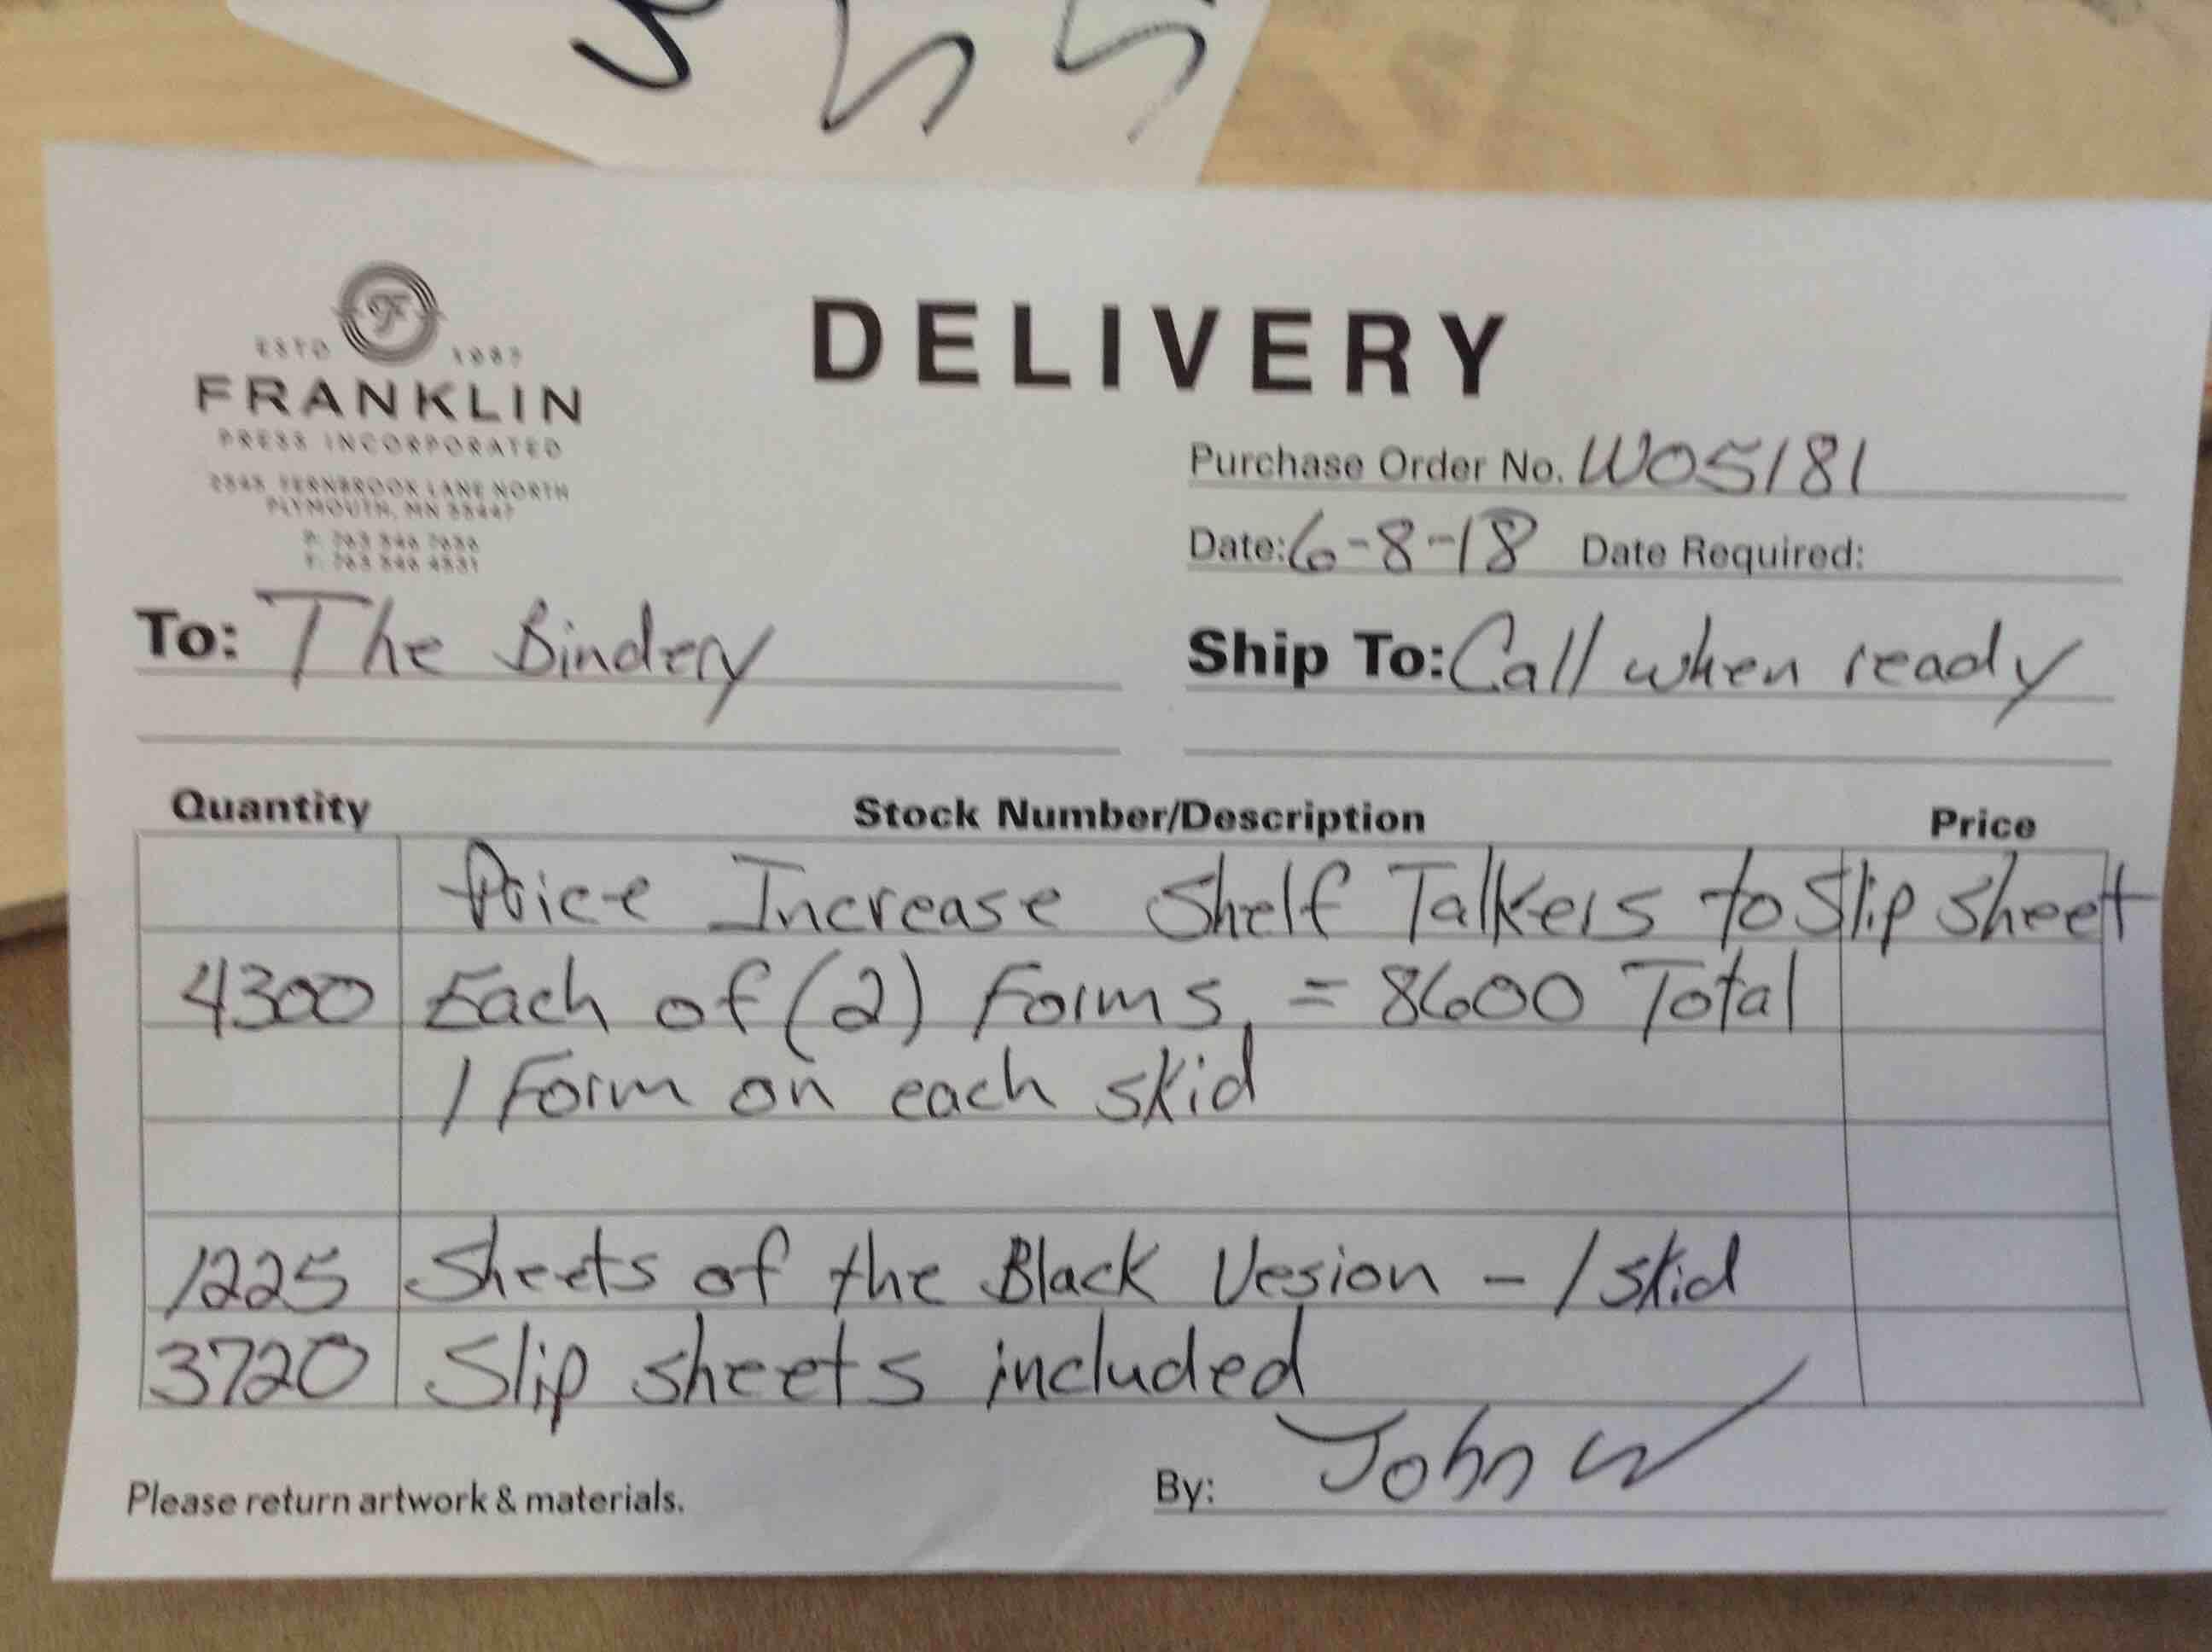 ESTD 1987
FRANKLIN
PRESS INCORPORATED
FERNBROOK LANE NORTH
PLYMOUTH, MN 55447
DELIVERY
Purchase Order No. W05181
Date: 6-8-18 Date Required:
To: The Bindery
Ship To: Call when ready
Quantity Stock Number/Description Price
Price Increase Shelf Talkers to Slip sheet
4300 Each of (2) Forms, = 8600 Total
1 Form on each skid
1225 Sheets of the Black Vesion - 1 skid
3720 Slip sheets included
Please return artwork & materials.
By: John W